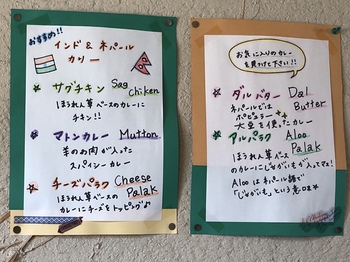 おすすめ!!
インド & ネパール
カリー
サグチキン Sag Chiken
ほうれん草ベースのカレーに
チキン!!
マトンカレー Mutton
羊のお肉が入った
スパイシーカレー
チーズパラク Cheese Palak
ほうれん草ベースの
カレーにチーズをトッピング♪
お気に入りのカレー
を見つけて下さい!!
ダルバター Dal Butter
ネパールでは
ポピュラー
大豆を使ったカレー
アルパラク Aloo Palak
ほうれん草ベース
のカレーにじゃがいもが入ってマス!
Alooはネパール語で
「じゃがいも」という意味